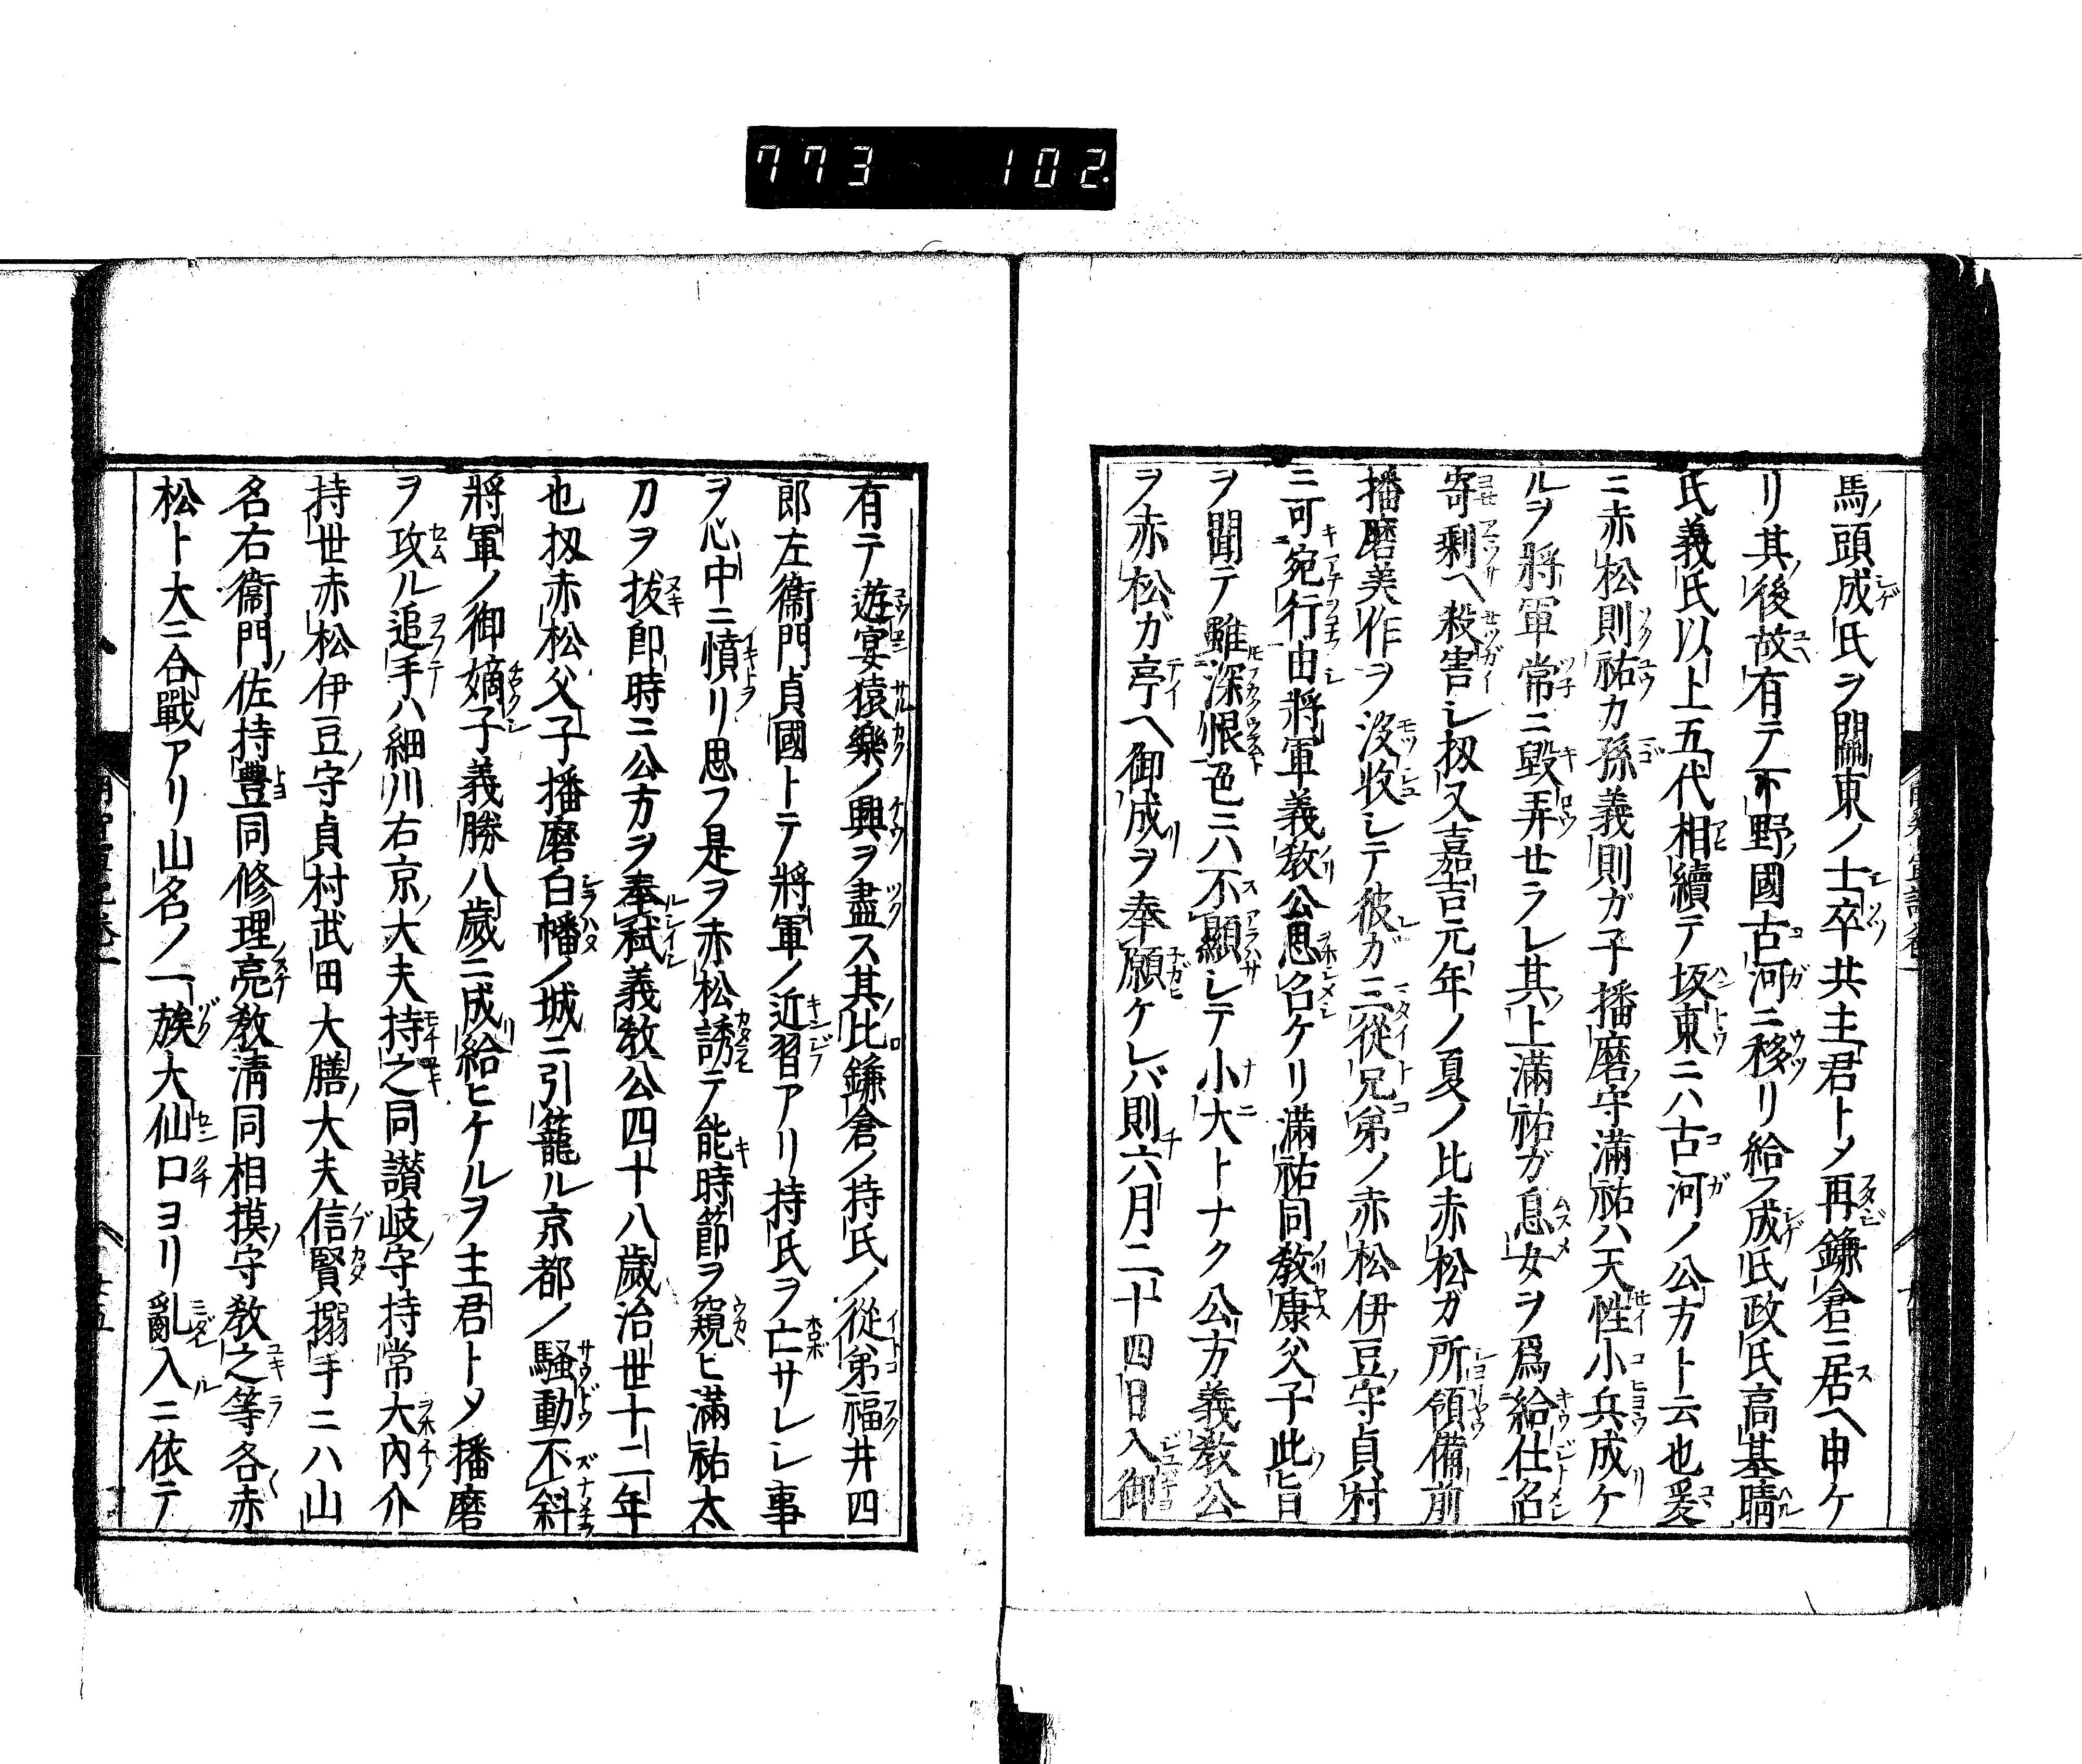 773 102
馬頭成氏ヲ關東ノ士卒共主君トメ再鎌倉ニ居ヘ申ケ
リ其後故有テ下野國古河ニ移リ給フ成氏政氏高基晴
氏義氏以上五代相續テ坂東ニハ古河ノ公方ト云也爰
ニ赤松則祐カ孫義則ガ子播磨守滿祐ハ天性小兵成ケ
ルヲ將軍常ニ毀弄せラレ其上滿祐ガ息女ヲ爲給仕名
寄剰ヘ殺害シ扨又嘉吉元年ノ夏ノ比赤松ガ所領備前
播磨美作ヲ沒收シテ彼ガ三從兄弟ノ赤松伊豆守貞村
ニ可宛行由將軍義教公思名ケリ滿祐同教康父子此旨
ヲ聞テ雖深恨色ニハ不顯シテ小大トナク公方義教公
ヲ赤松ガ亭ヘ御成ヲ奉願ケレバ則六月二十四日入御
有テ遊宴猿樂ノ興ヲ盡ス其比鎌倉ノ持氏ノ從弟福井四
郎左衞門貞國トテ將軍ノ近習アリ持氏ヲ亡サレシ事
ヲ心中ニ憤リ思フ是ヲ赤松誘テ能時節ヲ窺ヒ滿祐太
刀ヲ拔即時ニ公方ヲ奉弑義教公四十八歲治世十二年
也扨赤松父子播磨白幡ノ城ニ引籠ル京都ノ騷動不斜
將軍ノ御嫡子義勝八歲ニ成給ヒケルヲ主君トメ播磨
ヲ攻ル追手ハ細川右京大夫持之同讃岐守持常大內介
持世赤松伊豆守貞村武田大膳大夫信賢搦手ニハ山
名右衞門佐持豊同修理亮教淸同相摸守教之等各赤
松ト大ニ合戰アリ山名ノ一族大仙口ヨリ亂入ニ依テ